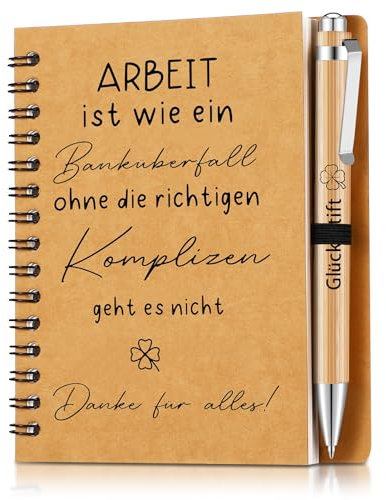 ARBEIT
ist wie ein
Banküberfall
ohne die richtigen
Komplizen
geht es nicht
Danke für alles!